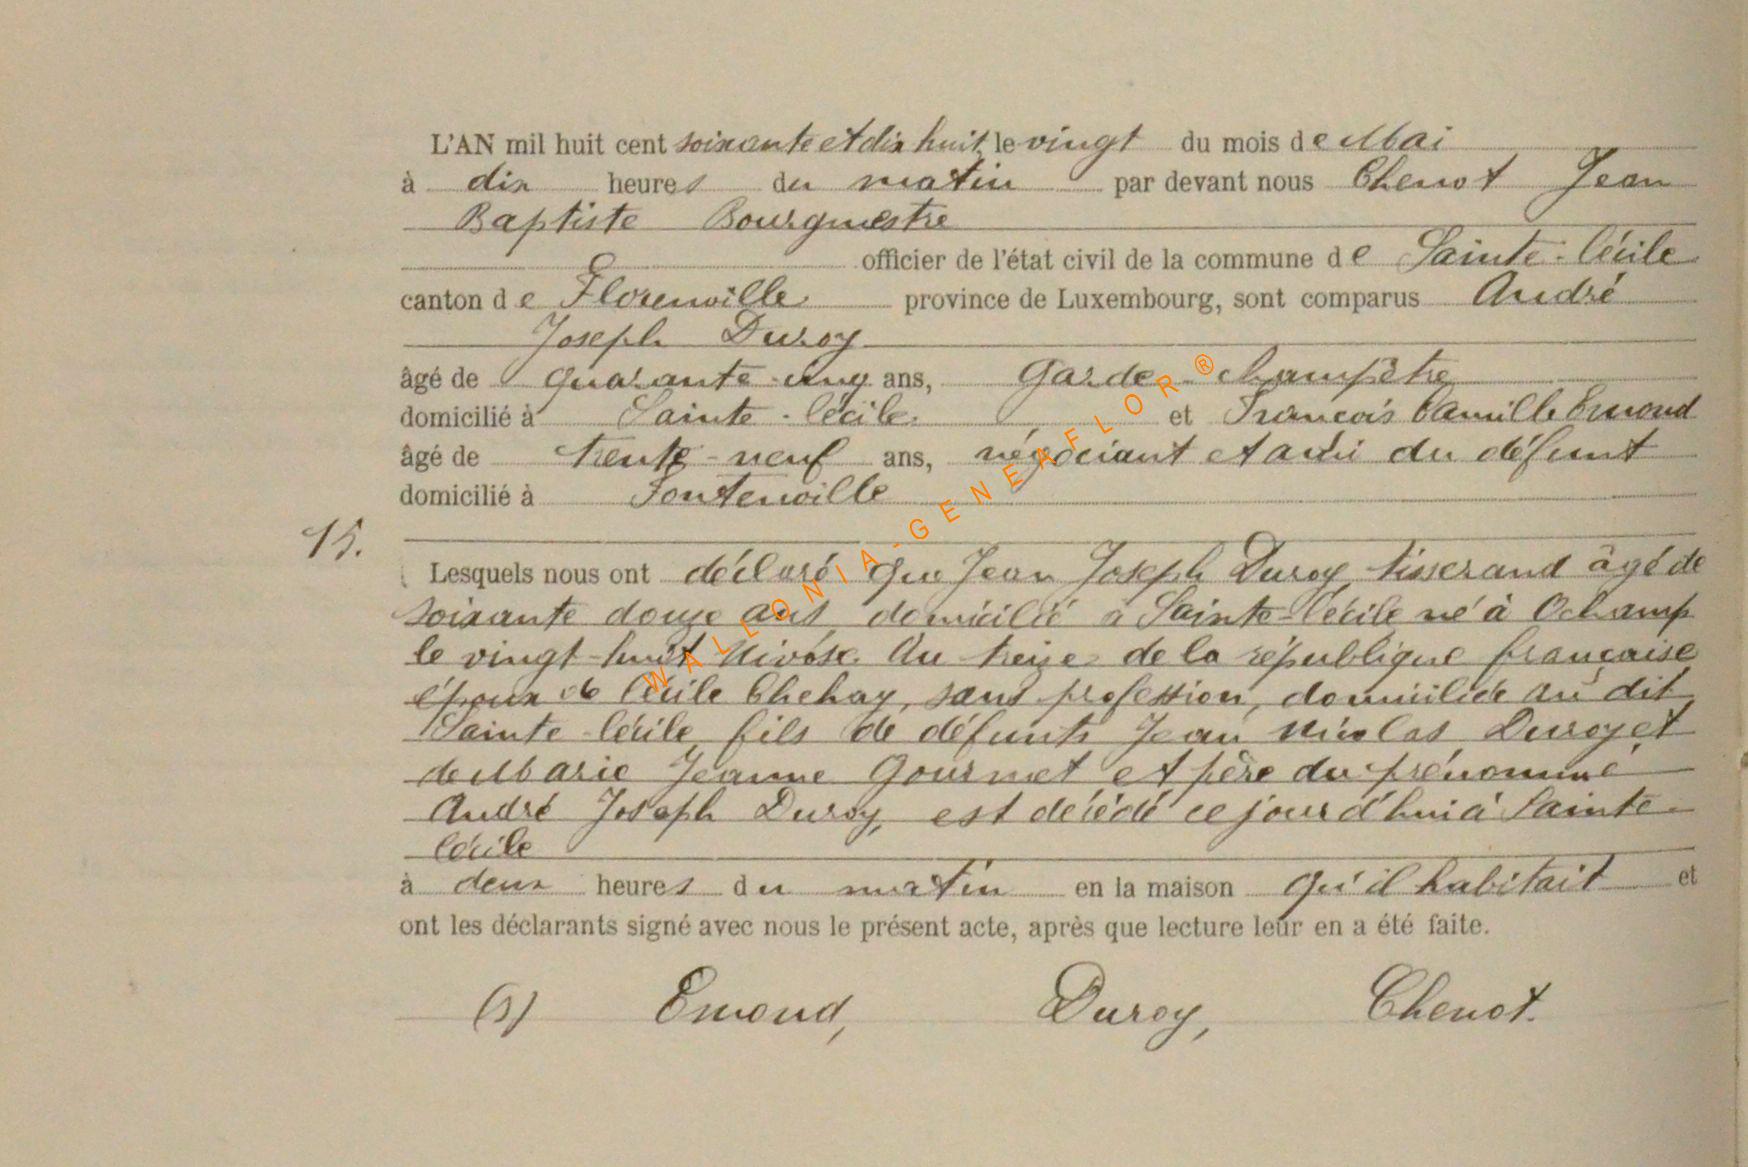 L'AN mil huit cent soixante et dix huit, le vingt du mois de Mai
à dix heures du matin par devant nous Chenot Jean
Baptiste Bourgmestre
officier de l'état civil de la commune de Sainte-Cécile
canton de Florenville province de Luxembourg, sont comparus André
Joseph Duroy
âgé de quarante-cinq ans, Garde-champêtre
domicilié à Sainte-Cécile et François Camille Emond
âgé de trente-neuf ans, négociant et ami du défunt
domicilié à Fontenoille
15.
Lesquels nous ont déclaré que Jean Joseph Duroy, tisserand âgé de
soixante douze ans domicilié à Sainte-Cécile né à Ochamp
le vingt-huit Nivôse An treize de la république française
époux de Cécile Chehay, sans profession, domiciliée au dit
Sainte-Cécile, fils de défunts Jean Nicolas Duroy et
de Marie Jeanne Gourmet et père du prénommé
André Joseph Duroy, est décédé ce jour d'hui à Sainte-
Cécile
à deux heures du matin en la maison qu'il habitait et
ont les déclarants signé avec nous le présent acte, après que lecture leur en a été faite.
(s) Emond, Duroy, Chenot.
WALLONIA-GENEAFLOR®